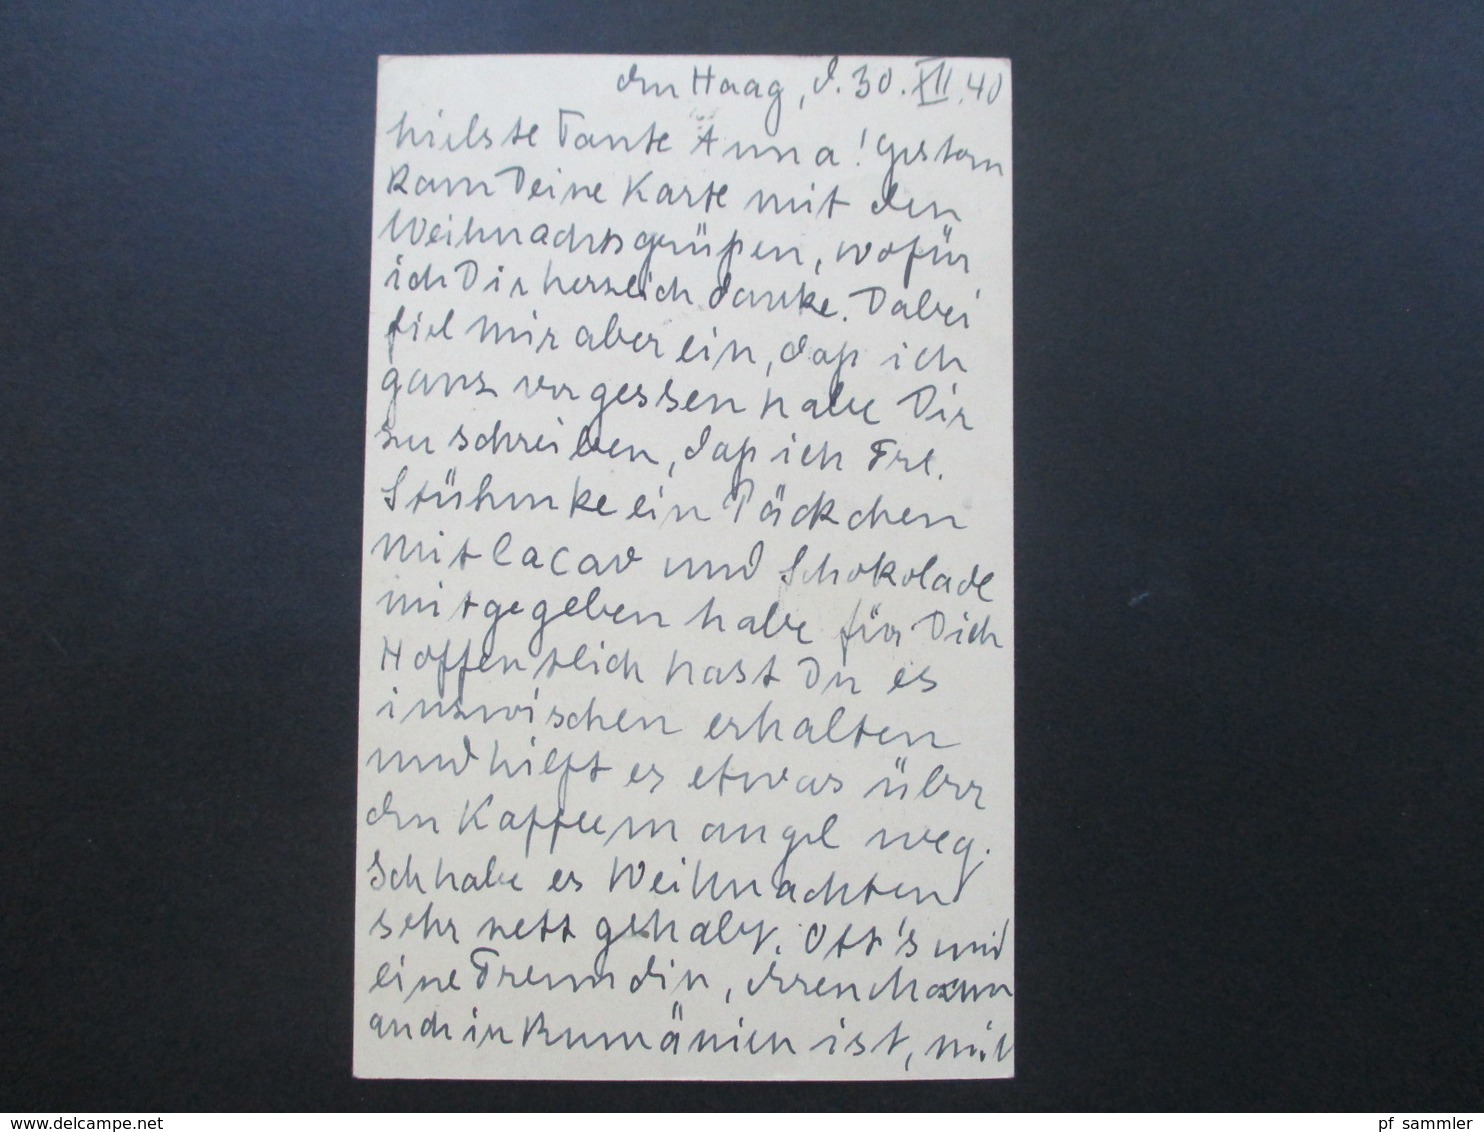 den Haag, d. 30. XII. 40
Liebste Tante Anna! Gestern
kam Deine Karte mit den
Weihnachtsgrüßen, wofür
ich Dir herzlich danke. Dabei
fiel mir aber ein, daß ich
ganz vergessen habe Dir
zu schreiben, daß ich Frl.
Stühmke ein Päckchen
mit Cacao und Schokolade
mitgegeben habe für Dich
Hoffentlich hast Du es
inzwischen erhalten
und hilft es etwas über
den Kaffeemangel weg.
Ich habe es Weihnachten
sehr nett gehabt. Ott's und
eine Freundin, deren Mann
auch in Rumänien ist, mit
www.delcampe.net
pf_sammler